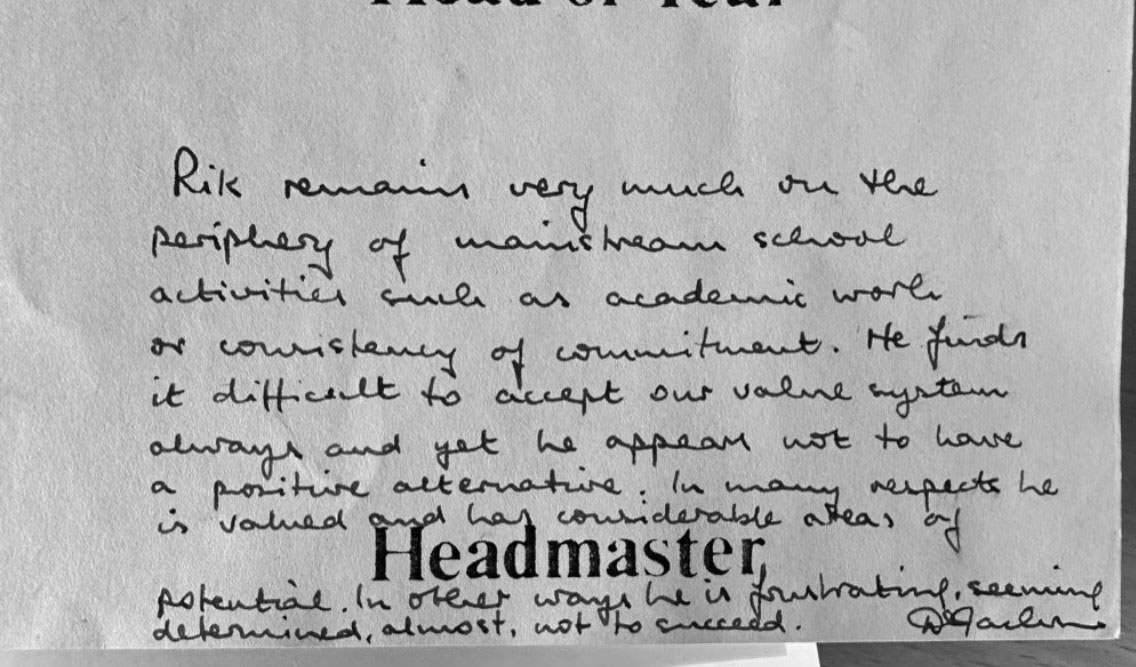 Head of Year
Rik remains very much on the
periphery of mainstream school
activities such as academic work
or consistency of commitment. He finds
it difficult to accept our value system
always and yet he appears not to have
a positive alternative. In many respects he
is valued and has considerable areas of
Headmaster
potential. In other ways he is frustrating, seeming
determined, almost, not to succeed.